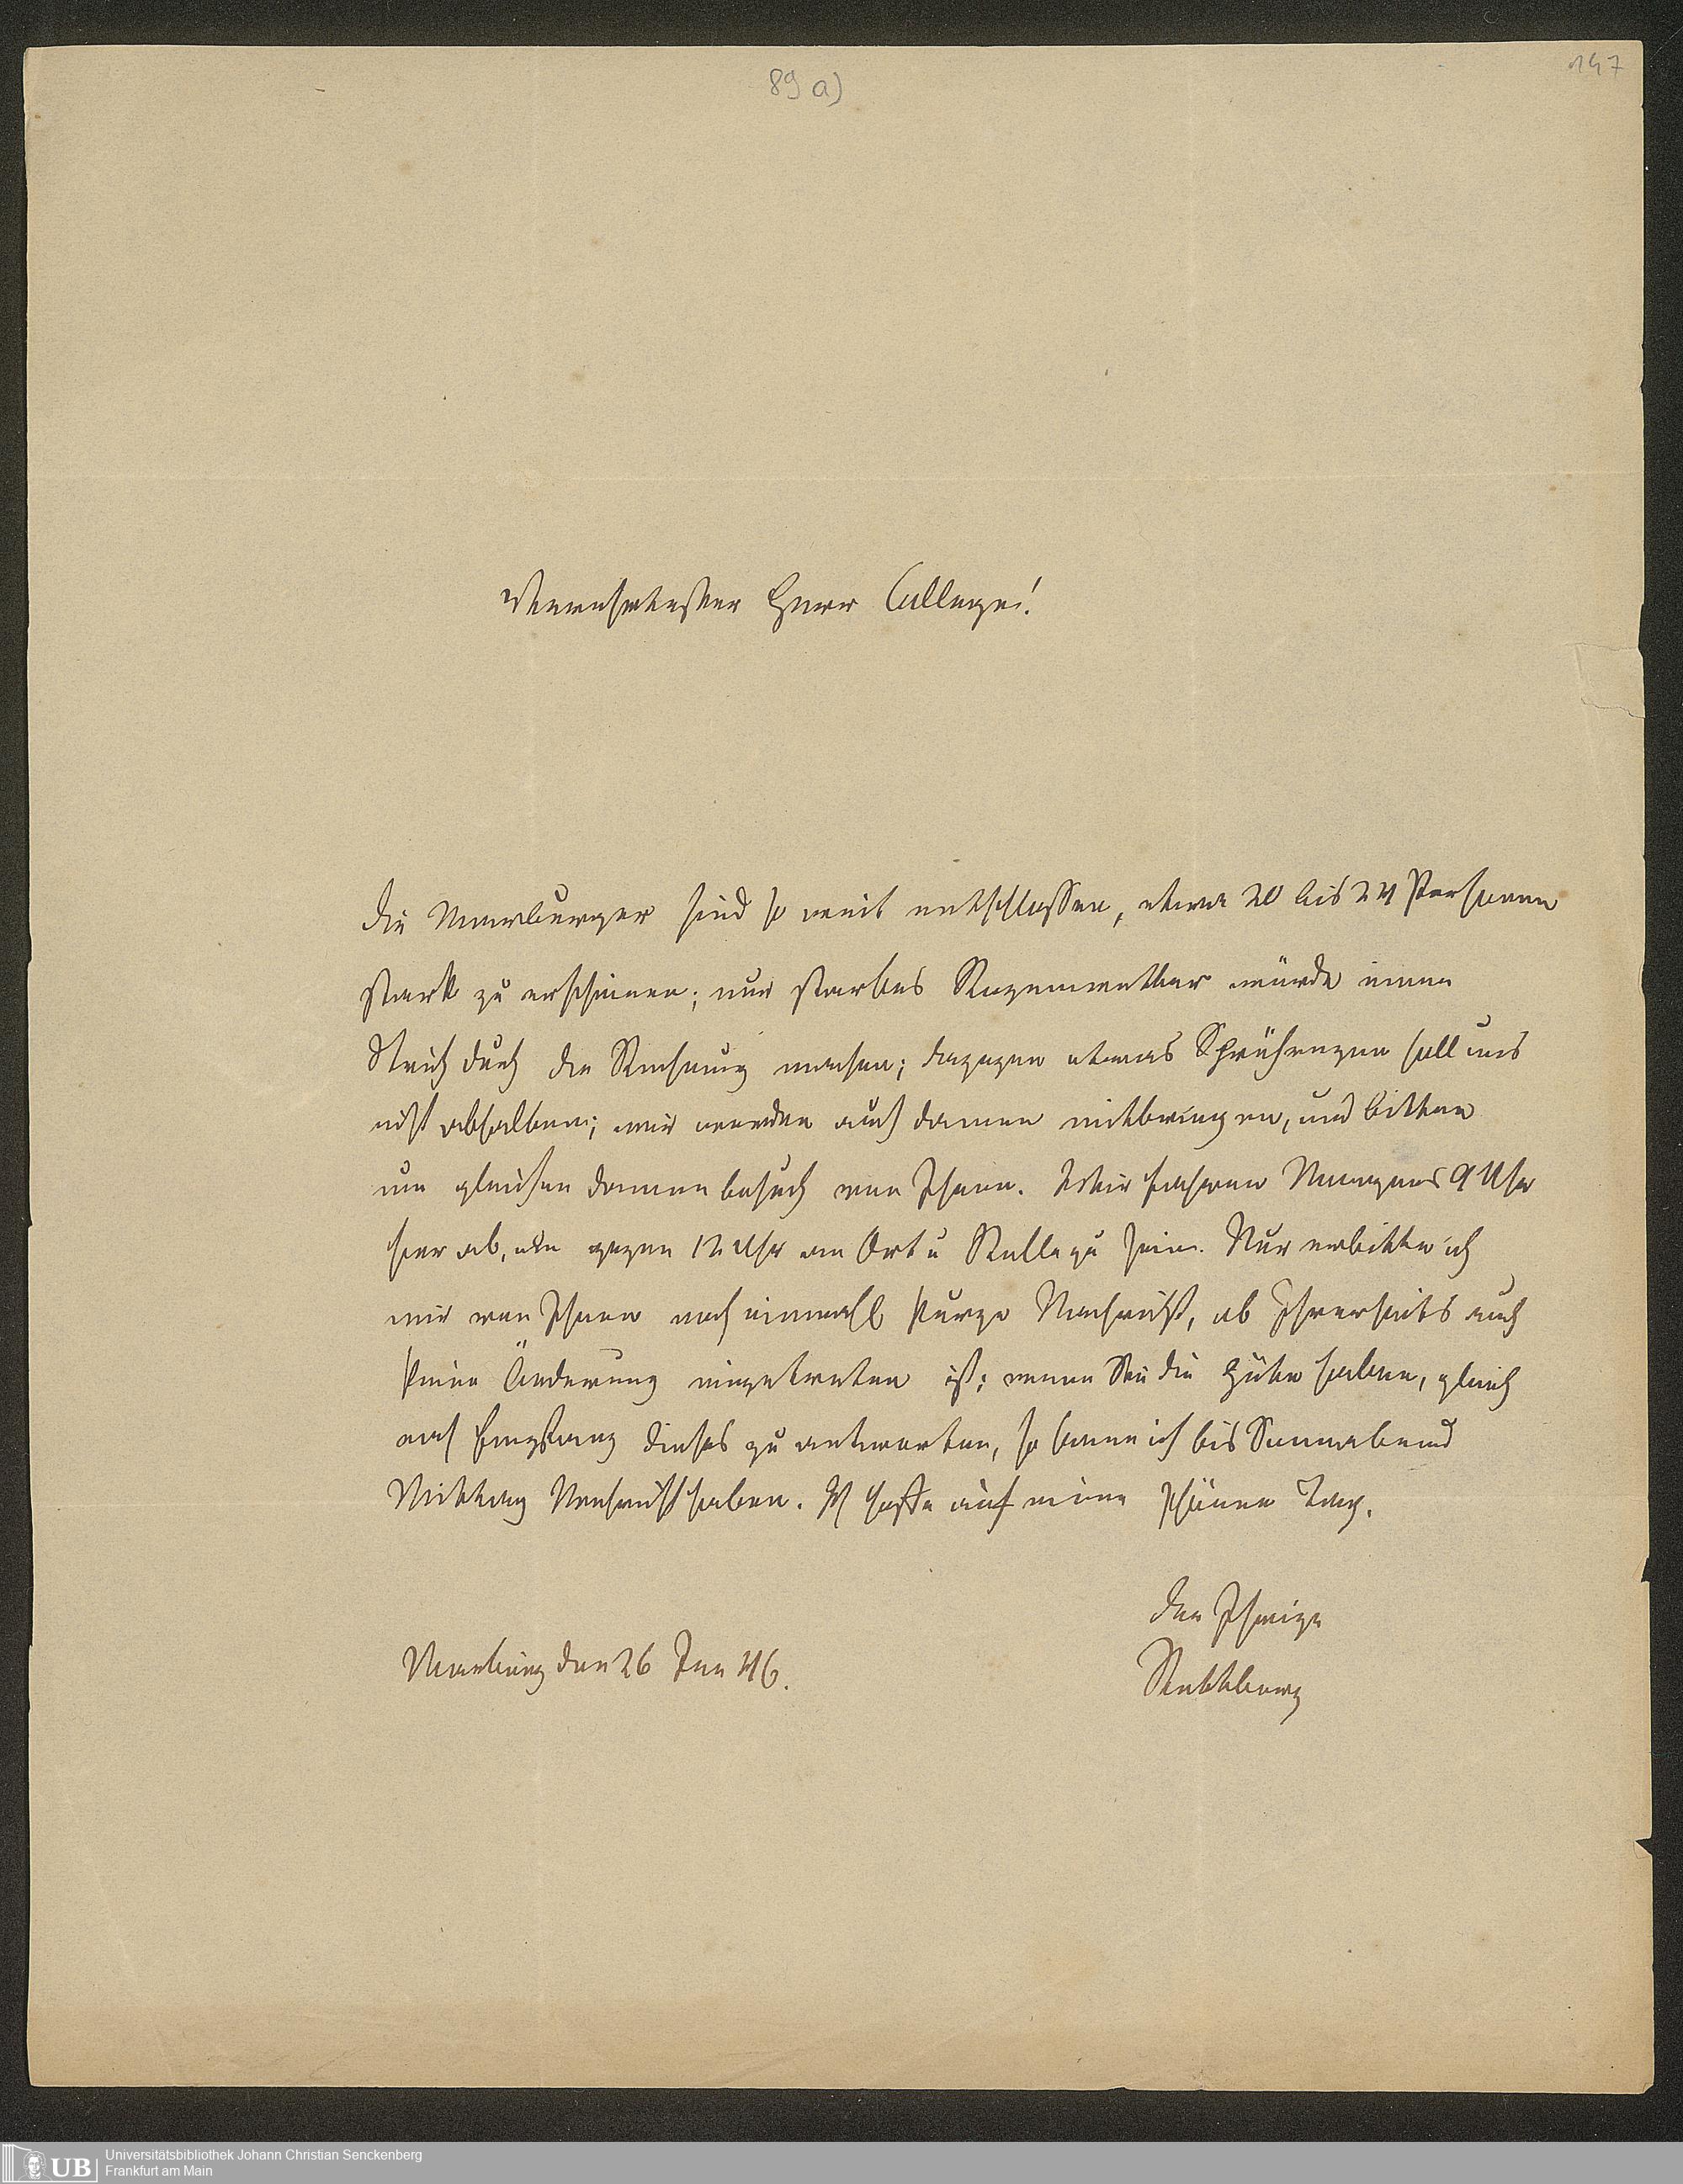 89 a)
147
Verehrtester Herr College!
die Marburger sind so weit entschlossen, etwa 20 bis 24 Personen
stark zu erscheinen; nur starkes Regenwetter würde einen
Strich durch die Rechnung machen; dagegen etwas Sprühregen soll uns
nicht abhalten; wir werden auch Damen mitbringen, und bitten
um gleichen Damenbesuch von Ihnen. Wir fahren Morgens 9 Uhr
hier ab, um gegen 12 Uhr an Ort u Stelle zu sein. Nur erbitte ich
mir von Ihnen noch einmahl kurze Nachricht, ob Ihrerseits auch
keine Änderung eingetreten ist; wenn Sie die Güte haben, gleich
nach Empfang dieses zu antworten, so kann ich bis Sonnabend
Mittag Nachricht haben. Ich hoffe auf einen schönen Tag.
der Ihrige
Marburg den 26 46.
Rettberg
UB
Universitätsbibliothek Johann Christian Senckenberg
Frankfurt am Main